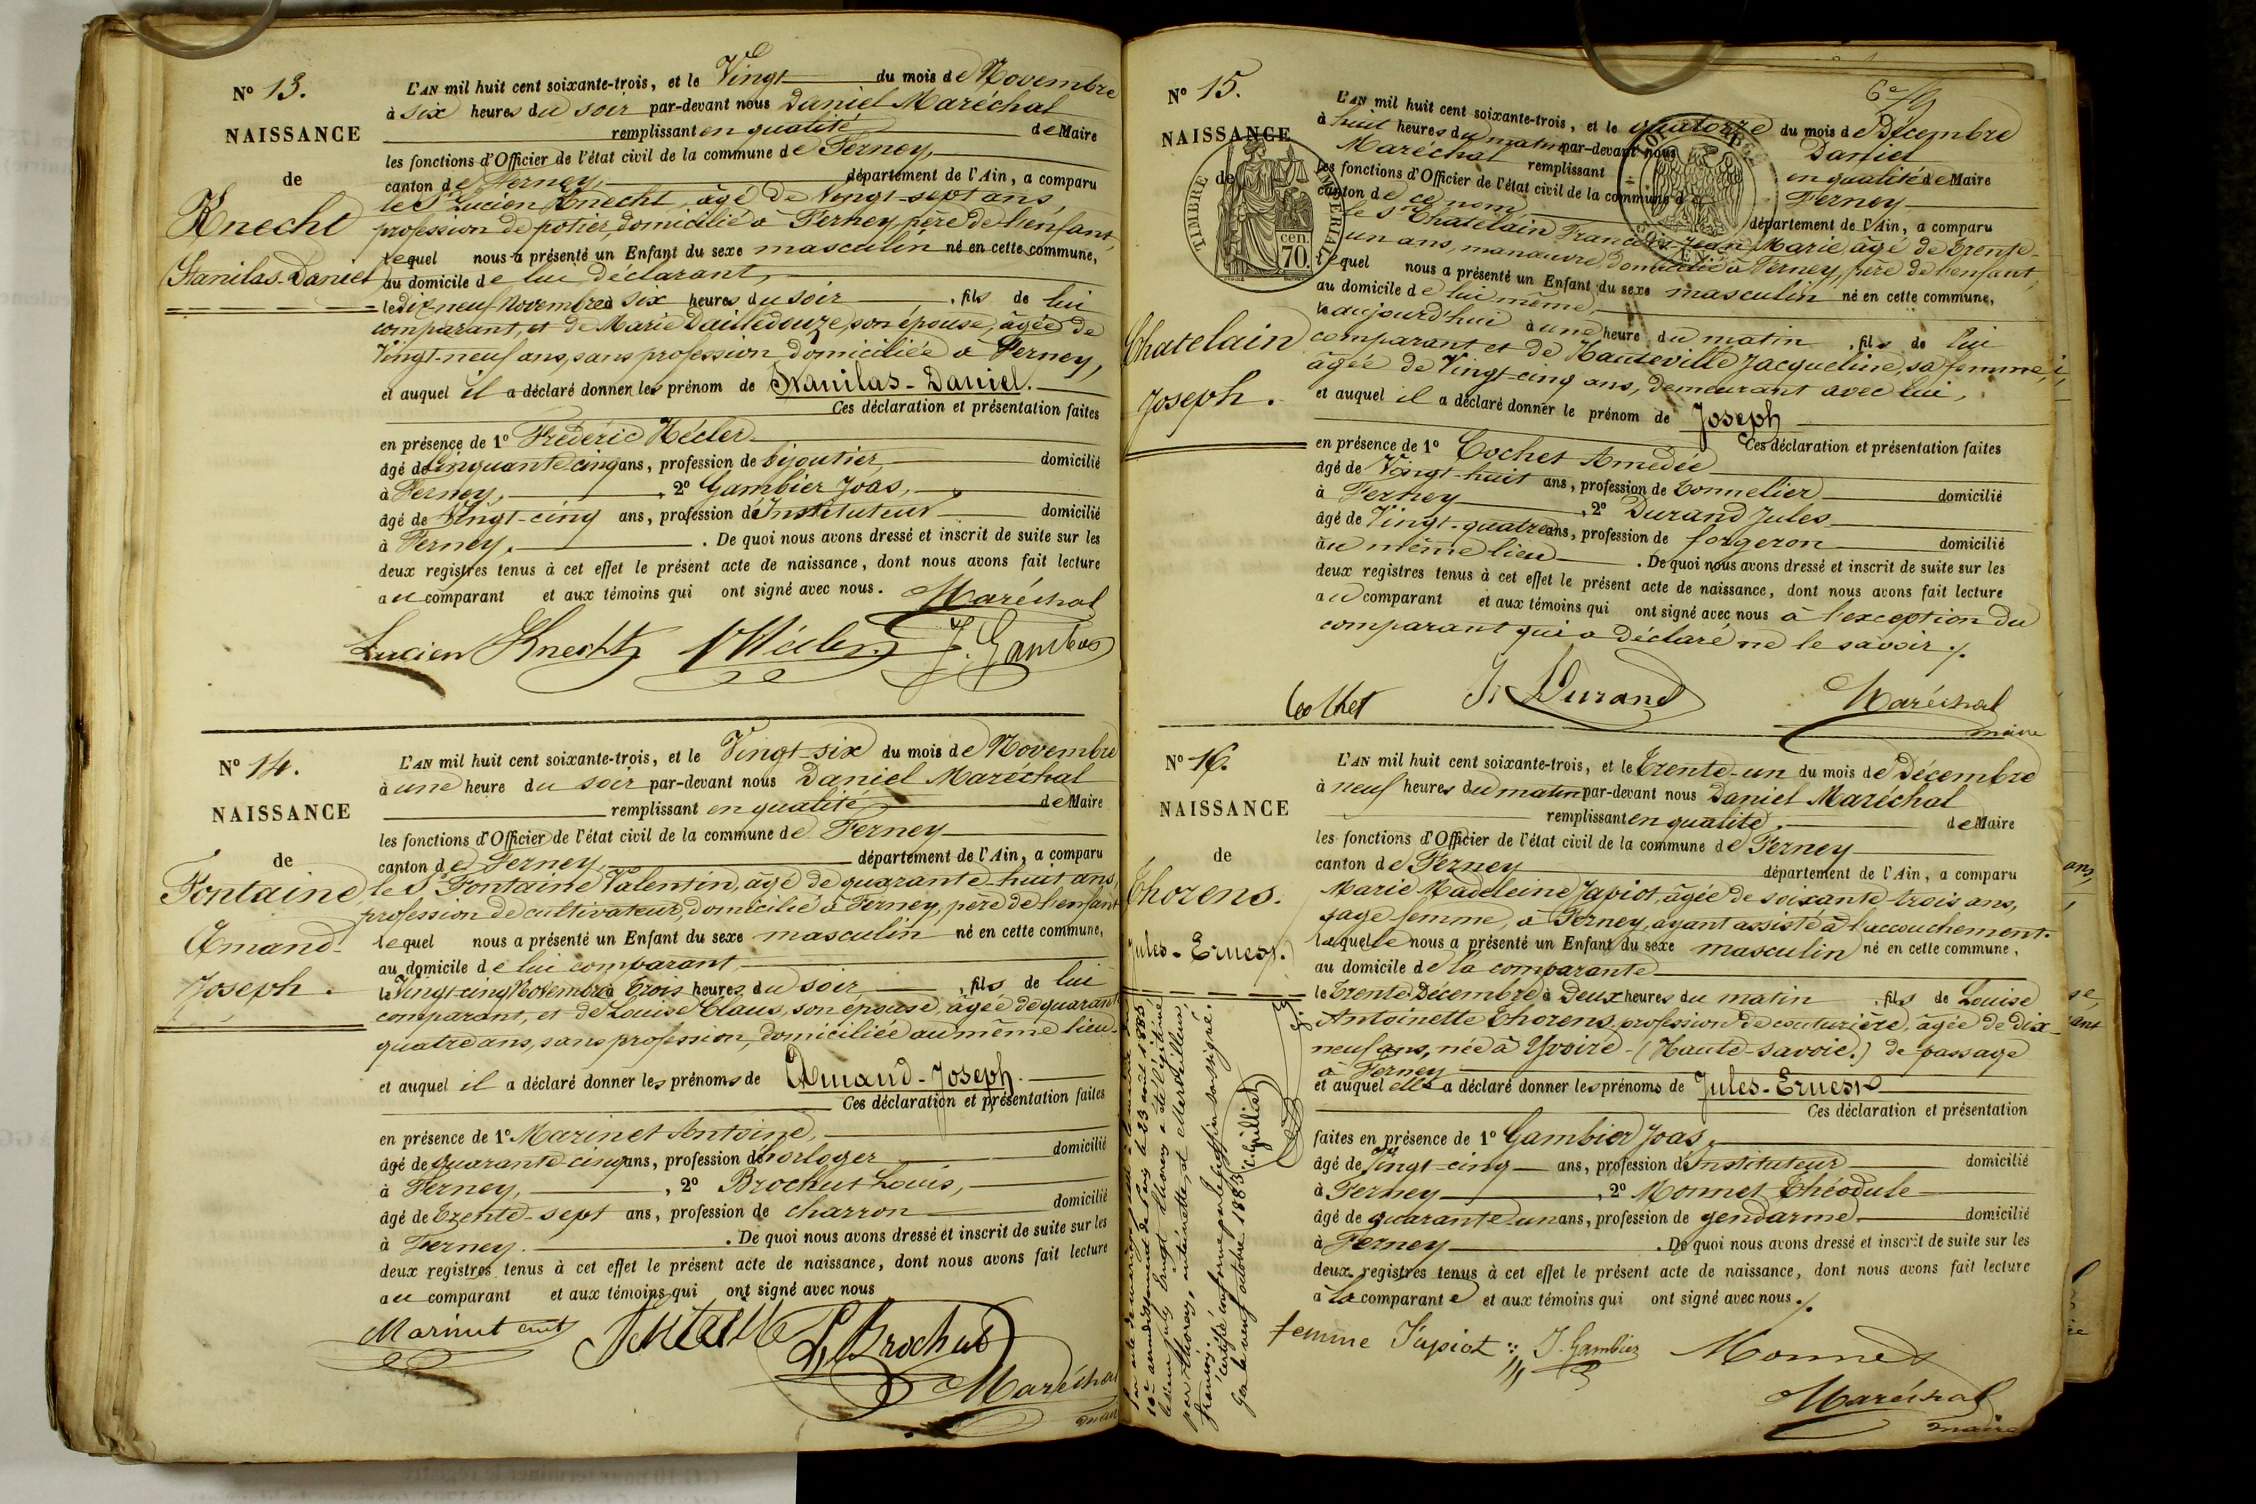 N° 13.
NAISSANCE
de
Knecht
Stanilas-Daniel
L'AN mil huit cent soixante-trois, et le Vingt du mois de Novembre
à six heures du soir par-devant nous Daniel Maréchal
remplissant en qualité de Maire
les fonctions d'Officier de l'état civil de la commune de Ferney,
canton de Ferney, département de l'Ain, a comparu
le Sr Lucien Knecht, âgé de Vingt-sept ans,
profession de potier, domicilié à Ferney, père de l'enfant,
lequel nous a présenté un Enfant du sexe masculin né en cette commune,
au domicile de lui déclarant,
le dix-neuf Novembre à six heures du soir, fils de lui
comparant, et de Marie Dailledouze, son épouse, âgée de
Vingt-neuf ans, sans profession, domiciliée à Ferney,
et auquel il a déclaré donner les prénom de Stanilas-Daniel.
Ces déclaration et présentation faites
en présence de 1° Frédéric Hécler
âgé de Cinquante cinq ans, profession de bijoutier, domicilié
à Ferney, , 2° Gambier Joas,
âgé de Vingt-cinq ans, profession d'Instituteur domicilié
à Ferney. . De quoi nous avons dressé et inscrit de suite sur les
deux registres tenus à cet effet le présent acte de naissance, dont nous avons fait lecture
au comparant et aux témoins qui ont signé avec nous. Maréchal
Lucien Knecht J. Gambier
N° 14.
NAISSANCE
de
Fontaine
Amand-
Joseph.
L'AN mil huit cent soixante-trois, et le Vingt-six du mois de Novembre
à une heure du soir par-devant nous Daniel Maréchal
remplissant en qualité de Maire
les fonctions d'Officier de l'état civil de la commune de Ferney
canton de Ferney, département de l'Ain, a comparu
le Sr Fontaine Valentin, âgé de quarante-huit ans,
profession de cultivateur, domicilié à Ferney, père de l'enfant
lequel nous a présenté un Enfant du sexe masculin né en cette commune,
au domicile de lui comparant,
le Vingt-cinq Novembre à trois heures du soir, fils de lui
comparant, et de Louise Claus, son épouse, âgée de quarante
quatre ans, sans profession, domiciliée au même lieu
et auquel il a déclaré donner les prénoms de Amand-Joseph.
Ces déclaration et présentation faites
en présence de 1° Marinet Antoine,
âgé de quarante cinq ans, profession d'horloger domicilié
à Ferney, , 2° Brochut Louis,
âgé de trente-sept ans, profession de charron domicilié
à Ferney. . De quoi nous avons dressé et inscrit de suite sur les
deux registres tenus à cet effet le présent acte de naissance, dont nous avons fait lecture
au comparant et aux témoins qui ont signé avec nous
Marinet ant L. Brochut
Maréchal
maire
6e/9
N° 15.
NAISSANCE
de
TIMBRE IMPERIAL
70 cen.
Chatelain
Joseph.
L'AN mil huit cent soixante-trois, et le quatorze du mois de Décembre
à huit heures du matin par-devant nous Daniel
Maréchal remplissant en qualité de Maire
les fonctions d'Officier de l'état civil de la commune de Ferney
canton de ce nom, département de l'Ain, a comparu
le Sr Chatelain François Jean Marie, âgé de trente-
un ans, manœuvre, domicilié à Ferney, père de l'enfant,
lequel nous a présenté un Enfant du sexe masculin né en cette commune,
au domicile de lui même,
le aujourd'hui à une heure du matin, fils de lui
comparant et de Hauteville Jacqueline, sa femme,
âgée de Vingt-cinq ans, demeurant avec lui,
et auquel il a déclaré donner le prénom de Joseph
Ces déclaration et présentation faites
en présence de 1° Cochet Amédée
âgé de Vingt-huit ans, profession de tonnelier domicilié
à Ferney , 2° Durand Jules
âgé de Vingt-quatre ans, profession de forgeron domicilié
au même lieu . De quoi nous avons dressé et inscrit de suite sur les
deux registres tenus à cet effet le présent acte de naissance, dont nous avons fait lecture
au comparant et aux témoins qui ont signé avec nous à l'exception du
comparant qui a déclaré ne le savoir ./.
Cochet J. Durand Maréchal
maire
N° 16.
NAISSANCE
de
Thorens.
Jules-Ernest.
L'AN mil huit cent soixante-trois, et le trente-un du mois de Décembre
à neuf heures du matin par-devant nous Daniel Maréchal
remplissant en qualité de Maire
les fonctions d'Officier de l'état civil de la commune de Ferney
canton de Ferney département de l'Ain, a comparu
Marie Madeleine Japiot, âgée de soixante trois ans,
sage femme, à Ferney, ayant assisté à l'accouchement.
laquelle nous a présenté un Enfant du sexe masculin né en cette commune,
au domicile de la comparante
le trente Décembre à Deux heures du matin, fils de Louise
Antoinette Thorens, profession de couturière, âgée de dix-
neuf ans, née à Yvoire - (Haute-Savoie.) de passage
à Ferney
et auquel elle a déclaré donner les prénoms de Jules-Ernest
Ces déclaration et présentation
faites en présence de 1° Gambier Joas,
âgé de Vingt-cinq ans, profession d'Instituteur domicilié
à Ferney , 2° Monnet Théodule
âgé de quarante un ans, profession de gendarme domicilié
à Ferney . De quoi nous avons dressé et inscrit de suite sur les
deux registres tenus à cet effet le présent acte de naissance, dont nous avons fait lecture
a la comparante et aux témoins qui ont signé avec nous ./.
femme Japiot J. Gambier Monnet
Maréchal
maire
10e arrondissement de Paris le 23 août 1883,
par Thorens, antoinette, et Merveilleux,
françois.
certifié conforme par le greffier soussigné.
Gex le neuf octobre 1883